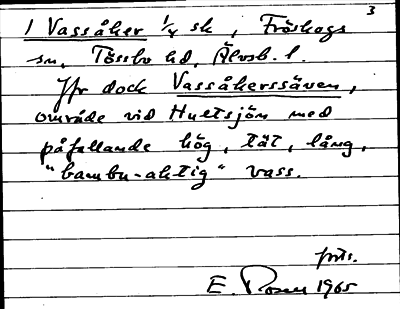 3
1 Vassåker 1/4 sk, Fröskogs
sn, Tössbo hd, Älvsb. l.
Jfr dock Vassåkerssäven,
område vid Hultsjön med
påfallande hög, tät, lång,
"bambu-aktig" vass.
E. Rosén 1965